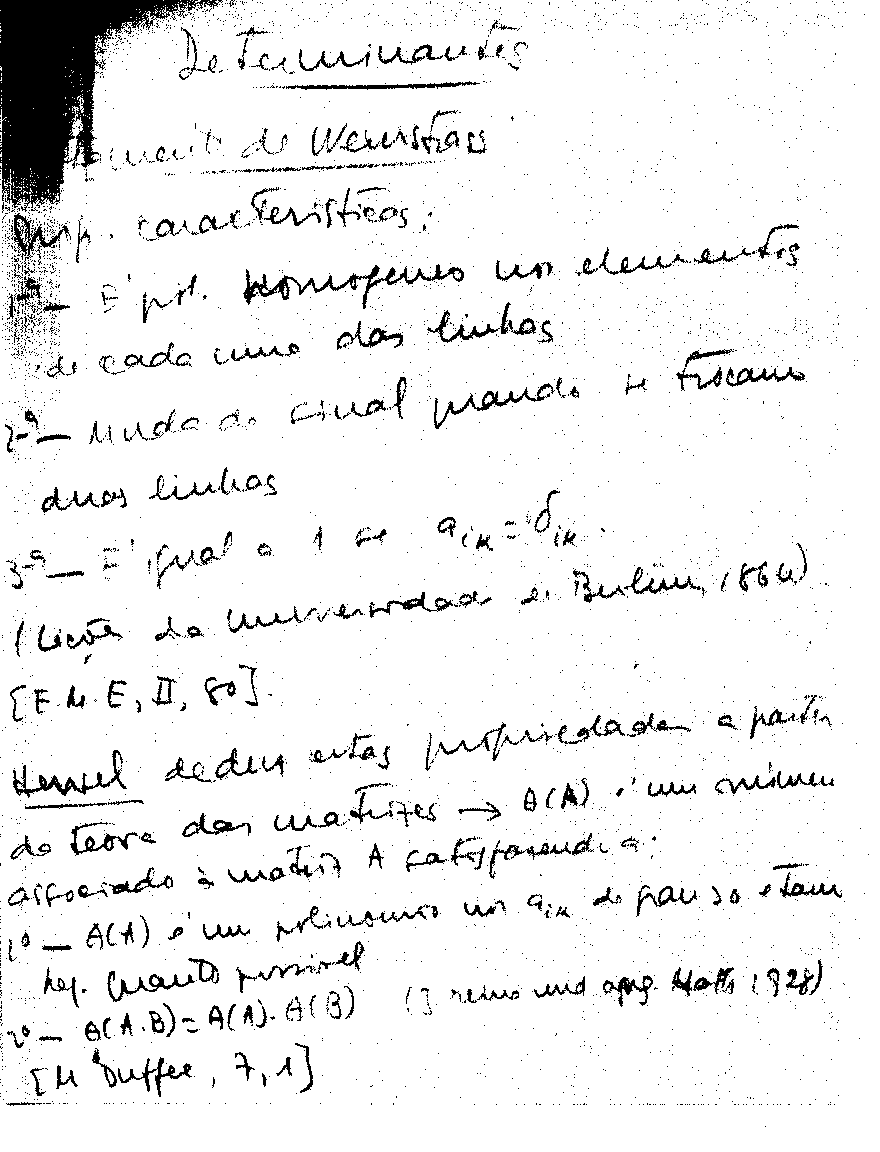 Determinantes
de Weierstrass
Prop. características:
1ª — É pol. Homogeneo nos elementos
de cada uma das linhas
2ª — Muda de sinal quando se trocam
duas linhas
3ª — É igual a 1 se a_{ik} = δ_{ik}.
(Lições da Universidade de Berlim, 1864)
[E.M.E, II, 80].
Hensel deduz estas propriedades a partir
da teoria das matrizes → θ(A) é um número
associado à matriz A satisfazendo a:
1º — θ(A) é um polinomio nos a_{ik} de grau >0 e tam
peq. quanto possivel
2º — θ(A.B) = θ(A). θ(B) (J reine und ang. Math 1928)
[Mc Duffee, 7, 1]